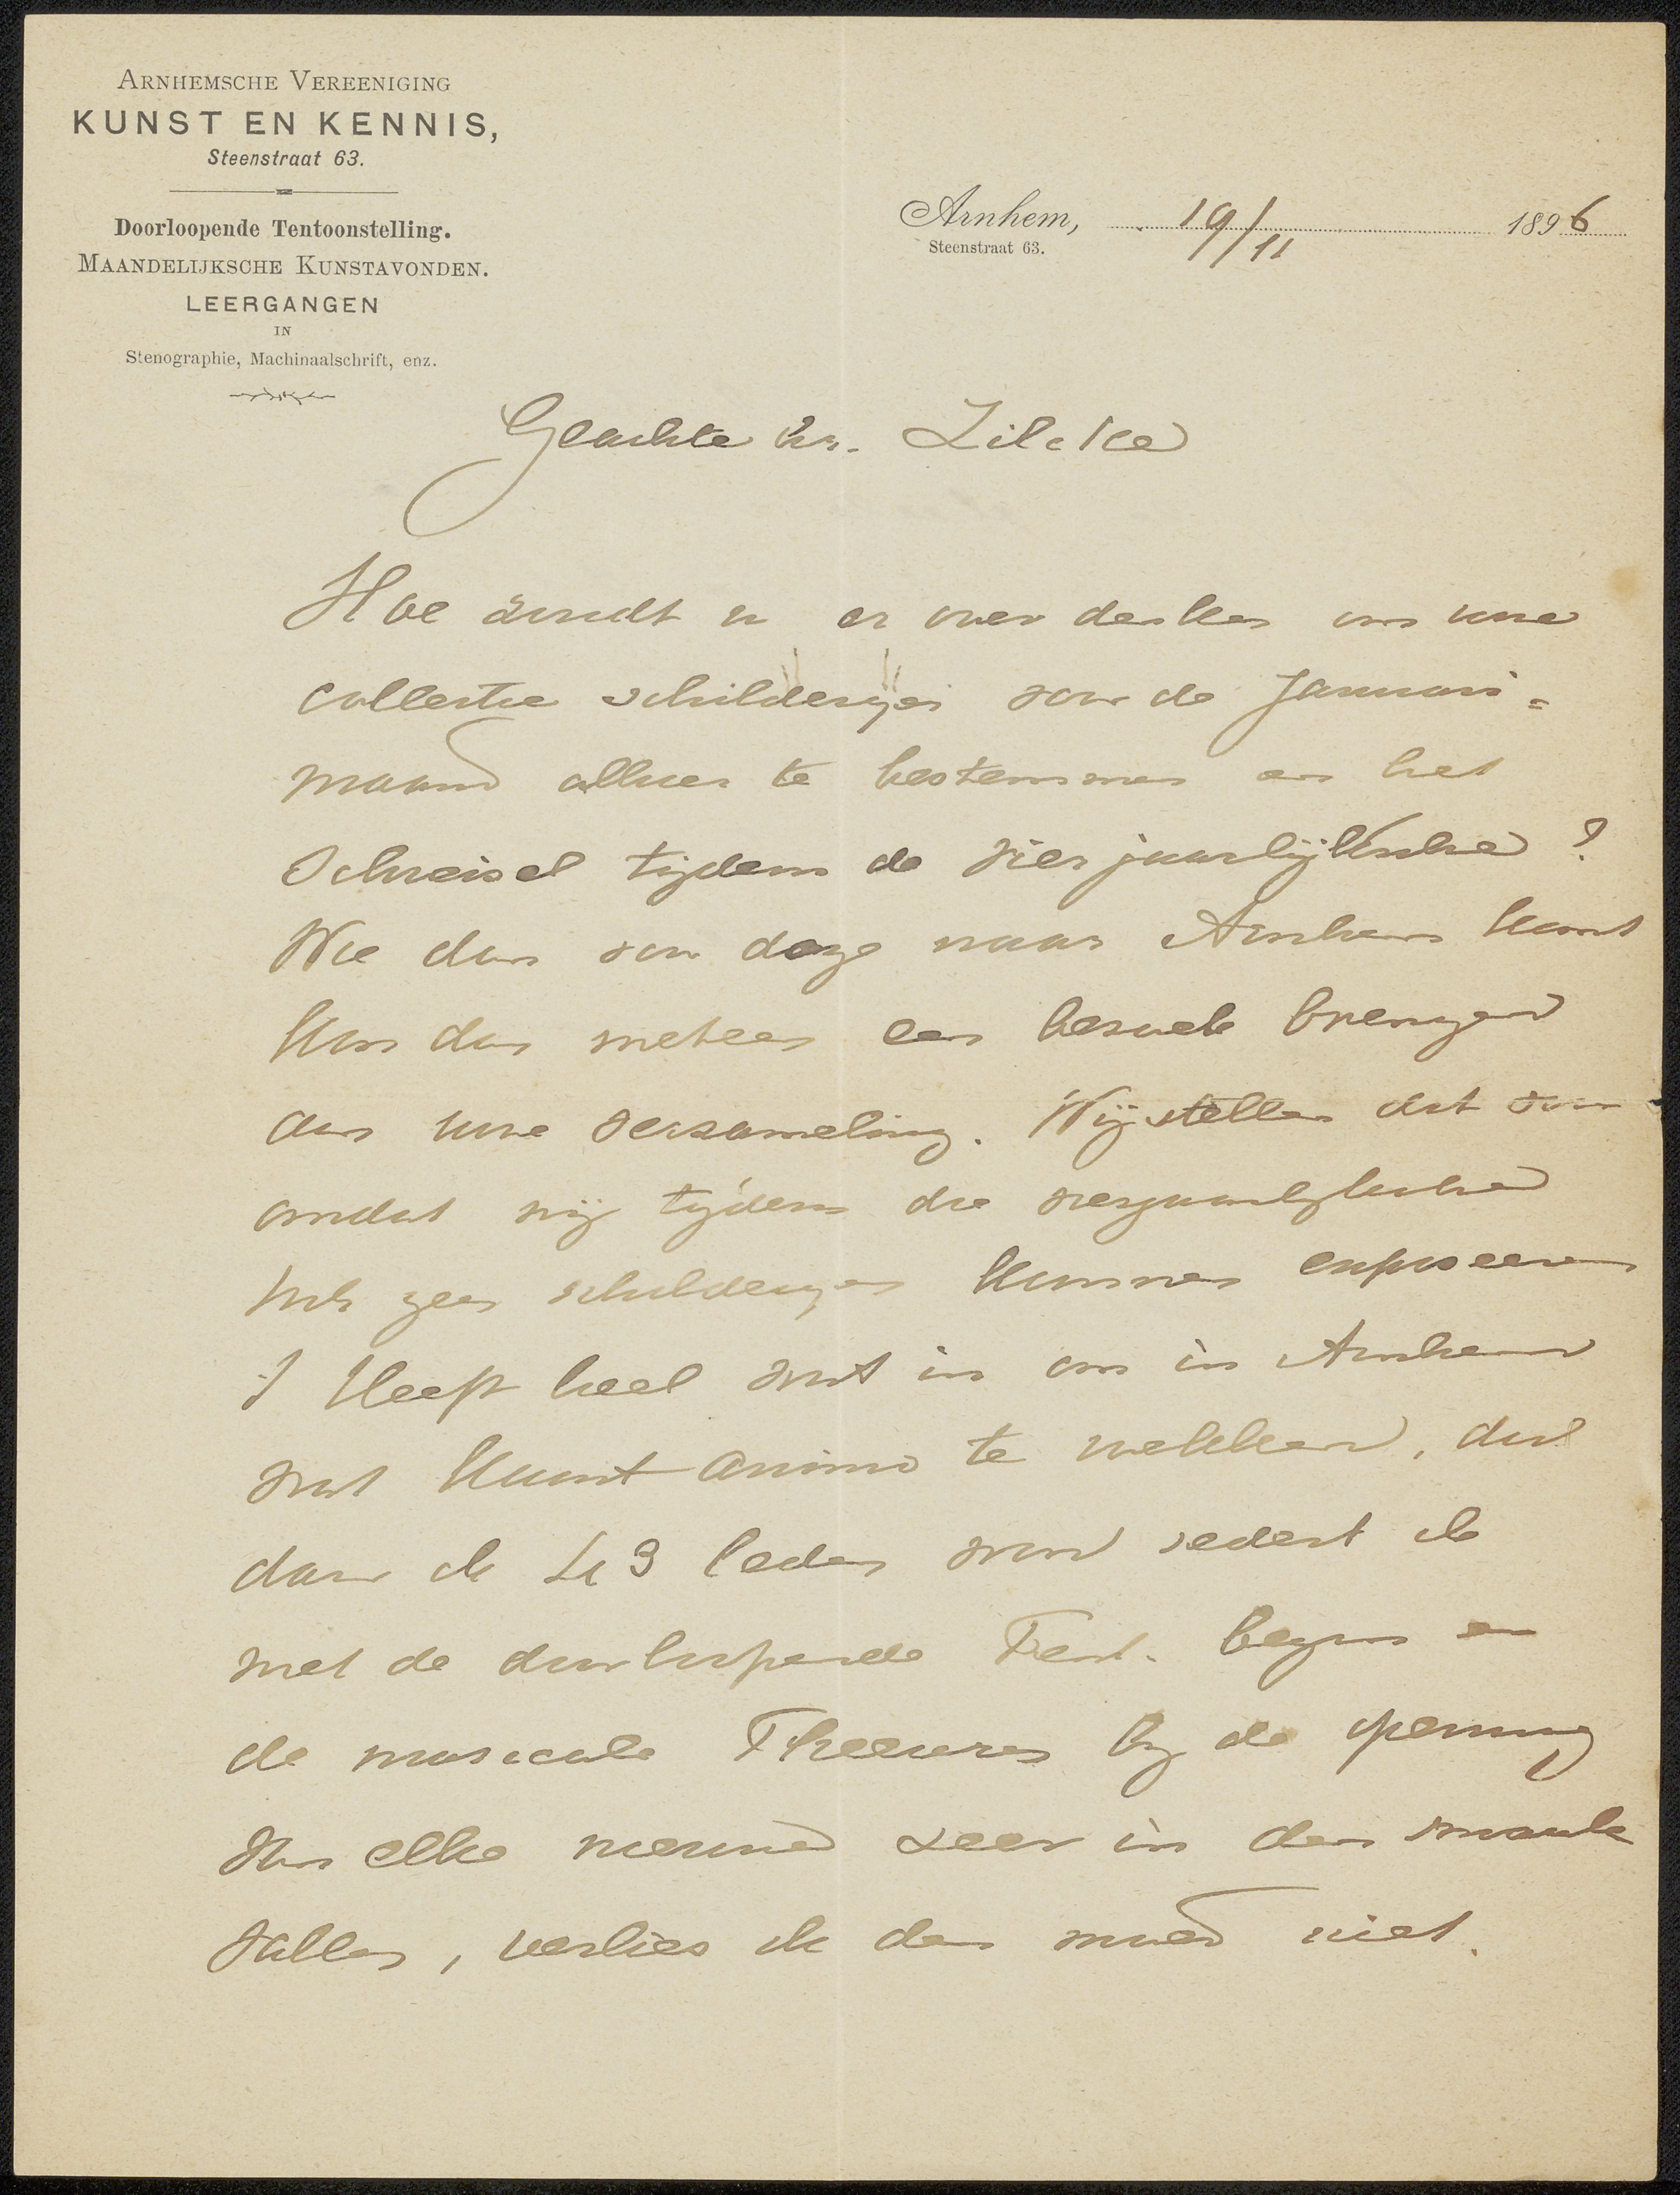 ARNHEMSCHE VEREENIGING
KUNST EN KENNIS,
Steenstraat 63.
Doorloopende Tentoonstelling.
MAANDELIJKSCHE KUNSTAVONDEN.
LEERGANGEN
IN
Stenographie, Machinaalschrift, enz.
Arnhem, 19/11 1896
Steenstraat 63.
Geachte hr. Zilcke
Hoe zoudt u er over denken om uwe
collectie schilderijen voor de Januari-
maand alhier te bestemmen en het
tijdens de vierjaarlijksche?
Wie dan voor deze naar Arnhem komt
kan dan meteen een bezoek brengen
aan uwe verzameling. Wij stellen dit voor
omdat wij tijdens die vierjaarlijksche
toch geen schilderijen kunnen exposeeren
't Heeft heel wat in om in Arnhem
wat kunst animo te wekken, doch
daar ik 43 leden won sedert ik
met de doorlopende Tent. begon en
de musicale by de opening
van elke nieuwe zeer in den smaak
vallen, verlies ik den moed niet.